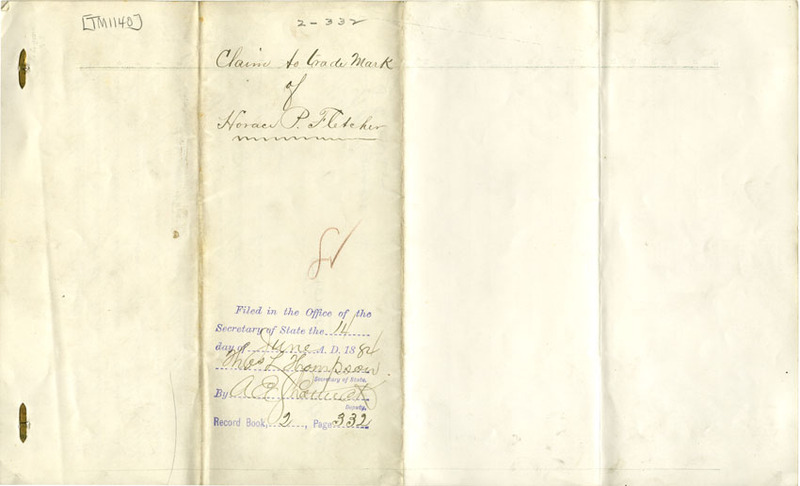 [TM1140]
2-332
Claim to trade Mark
of
Horace P. Fletcher
Filed in the Office of the
Secretary of State the 14
day of June A. D. 1884
Thos L. Thompson
Secretary of State.
By A. E.
Deputy.
Record Book, 2, Page 332